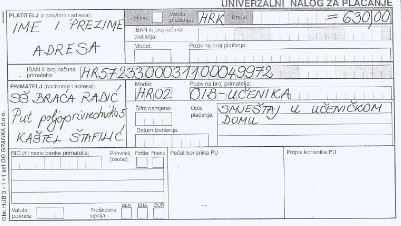 UNIVERZALNI NALOG ZA PLAĆANJE
PLATITELJ (naziv/ime i adresa):
IME I PREZIME
ADRESA
Hitno:
Valuta plaćanja: HRK
Iznos: = 630,00
IBAN ili broj računa platitelja:
Model:
Poziv na broj platitelja:
IBAN ili broj računa primatelja: HR5723300031100049972
PRIMATELJ (naziv/ime i adresa):
SŠ BRAĆA RADIĆ
Put poljoprivrednika 5
KAŠTEL ŠTAFILIĆ
Model: HR02
Poziv na broj primatelja:
OIB-UČENIKA
Šifra namjene:
Opis plaćanja:
SMJEŠTAJ U UČENIČKOM
DOMU
Datum izvršenja:
BIC i/ili naziv banke primatelja:
Primatelj (osoba):
Fizička
Pravna
Pečat korisnika PU
Potpis korisnika PU
Valuta pokrića:
Troškovna opcija:
BEN
SHA
OUR